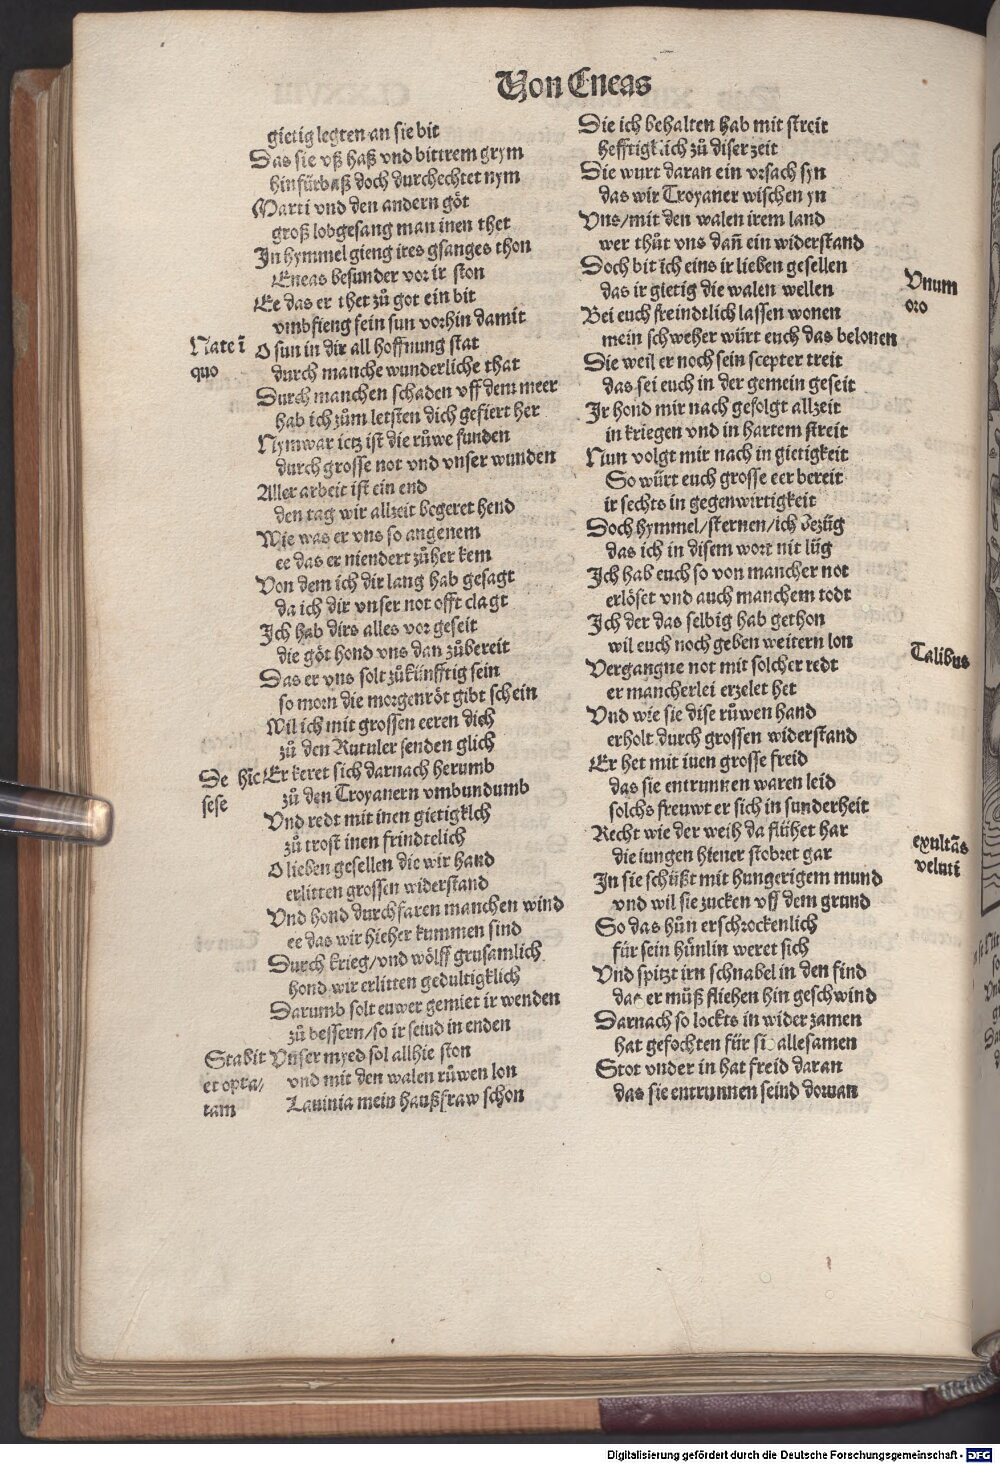 Von Eneas
gietig legten an sie bit
Das sie vß haß vnd bittrem grym
hinfürbaß doch durchechtet nym
Marti vnd den andern göt
groß lobgesang man inen thet
In hymmel gieng ires gsanges thon
Eneas besunder vor ir ston
Ee das er thet zů got ein bit
vmbfieng sein sun vorhin damit
Nate ī
quo
O sun in dir all hoffnung stat
durch manche wunderliche that
Durch manchen schaden vff dem meer
hab ich zům letsten dich gefiert her
Nymwar ietz ist die růwe funden
durch grosse not vnd vnser wunden
Aller arbeit ist ein end
den tag wir allzeit begeret hend
Wie was er vns so angenem
ee das er niendert zůher kem
Von dem ich dir lang hab gesagt
da ich dir vnser not offt clagt
Ich hab dirs alles vor geseit
die göt hond vns dan zůbereit
Das er vns solt zůkünfftig sein
so morn die morgenröt gibt schein
Wil ich mit grossen eeren dich
zů den Rutuler senden glich
De hic
sese
Er keret sich darnach herumb
zů den Troyanern vmbundumb
Vnd redt mit inen gietigklch
zů trost inen frindtelich
O lieben gesellen die wir hand
erlitten grossen widerstand
Vnd hond durchfaren manchen wind
ee das wir hieher kummen sind
Durch krieg/vnd wölff grusamlich
hond wir erlitten gedultigklich
Darumb solt euwer gemiet ir wenden
zů bessern/so ir seiud in enden
Stabit
et opta/
tam
Vnser myed sol allhie ston
vnd mit den walen růwen lon
Lauinia mein haußfraw schon
Die ich behalten hab mit streit
hefftigklich zů diser zeit
Die wurt daran ein vrsach syn
das wir Troyaner wischen yn
Vns/mit den walen irem land
wer thůt vns dañ ein widerstand
Vnum
oro
Doch bit ich eins ir lieben gesellen
das ir gietig die walen wellen
Bei euch freindtlich lassen wonen
mein schweher würt euch das belonen
Die weil er noch sein scepter treit
das sei euch in der gemein geseit
Ir hond mir nach gefolgt allzeit
in kriegen vnd in hartem streit
Nun volgt mir nach in gietigkeit
So würt euch grosse eer bereit
ir sechts in gegenwirtigkeit
Doch hymmel/sternen/ich bezüg
das ich in disem wort nit lüg
Ich hab euch so von mancher not
erlöset vnd auch manchem todt
Ich der das selbig hab gethon
wil euch noch geben weitern lon
Talibus
Vergangne not mit solcher redt
er mancherlei erzelet het
Vnd wie sie dise růwen hand
erholt durch grossen widerstand
Er het mit iuen grosse freid
das sie entrunnen waren leid
solchs freuwt er sich in sunderheit
exultās
veluti
Recht wie der weih da flühet har
die iungen hiener stobret gar
In sie schüßt mit hungerigem mund
vnd wil sie zucken vff dem grund
So das hůn erschrockenlich
für sein hünlin weret sich
Vnd spitzt irn schnabel in den find
das er müß fliehen hin geschwind
Darnach so lockts in wider zamen
hat gefochten für si allesamen
Stot vnder in hat freid daran
das sie entrunnen seind dowan
Digitalisierung gefördert durch die Deutsche Forschungsgemeinschaft - DFG